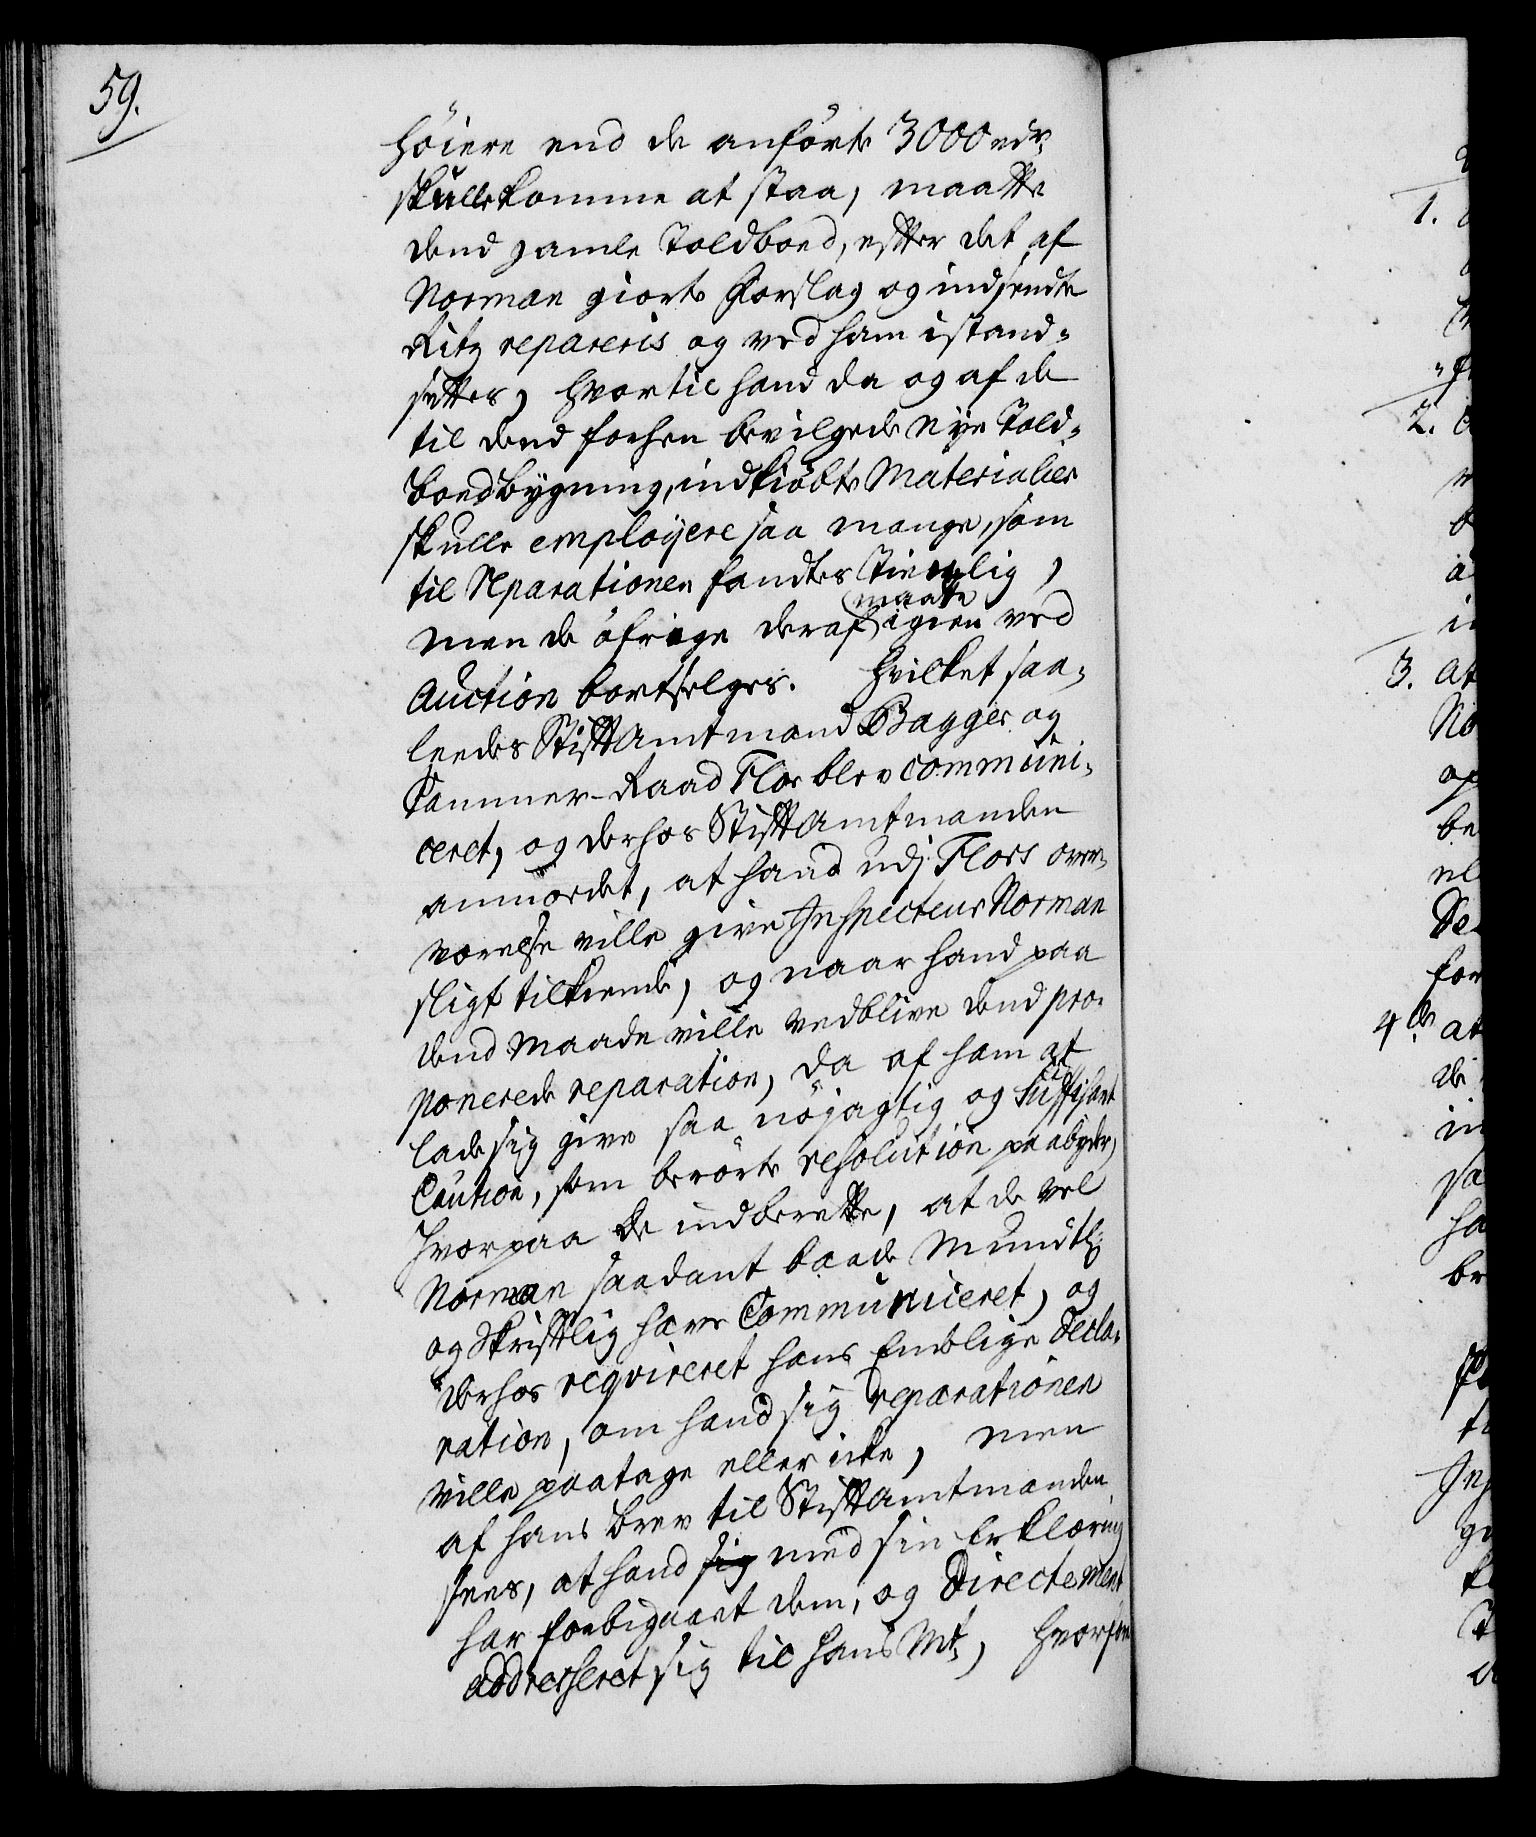 59.
höiere end de anförte 3000 rdr
skulle komme at staa, maatte
dend gamle Toldboed, efter det af
Norman giorte Forslag og indsendte
Ritz repareris og ved ham istand-
settes, hvortil hand da og af de
til dend forhen bevilgede Nÿe Told-
boedbÿgning, indkiöbte Materialier
skulle emploÿere saa mange, som
til Reparationen fandtes Tienlig,
men de öfrige deraf maatte igien ved
Auction bortselges. Hvilket saa-
ledes Stiftamtmand Bagger og
Cammer-Raad Flor blev communi-
ceret, og derhos Stiftamtmanden
anmodet, at hand udj Flors over-
værelse ville give Inspecteur Norman
sligt tilkiende, og naar hand paa
dend Maade ville vedblive dend pro-
ponerede reparation, da af ham at
lade sig give saa nöjagtig og Suffisant
Caution, som berörte resolution paabyder,
Hvorpaa de indberette, at de vel
Norman saadant baade Mundtl:
og Skriftlig have Communiceret, og
derhos reqvireret hans Endlige Decla-
ration, om hand sig reparationen
ville paatage eller icke, men
af hans brev til Stiftamtmanden
sees, at hand sig med sin Erklæring
har forbigaaet dem, og Directement
addresseret sig til Hans Mt, Hvorfore
1.
2.
3. at
No
be
for
4de at
de
in
sa
ha
br